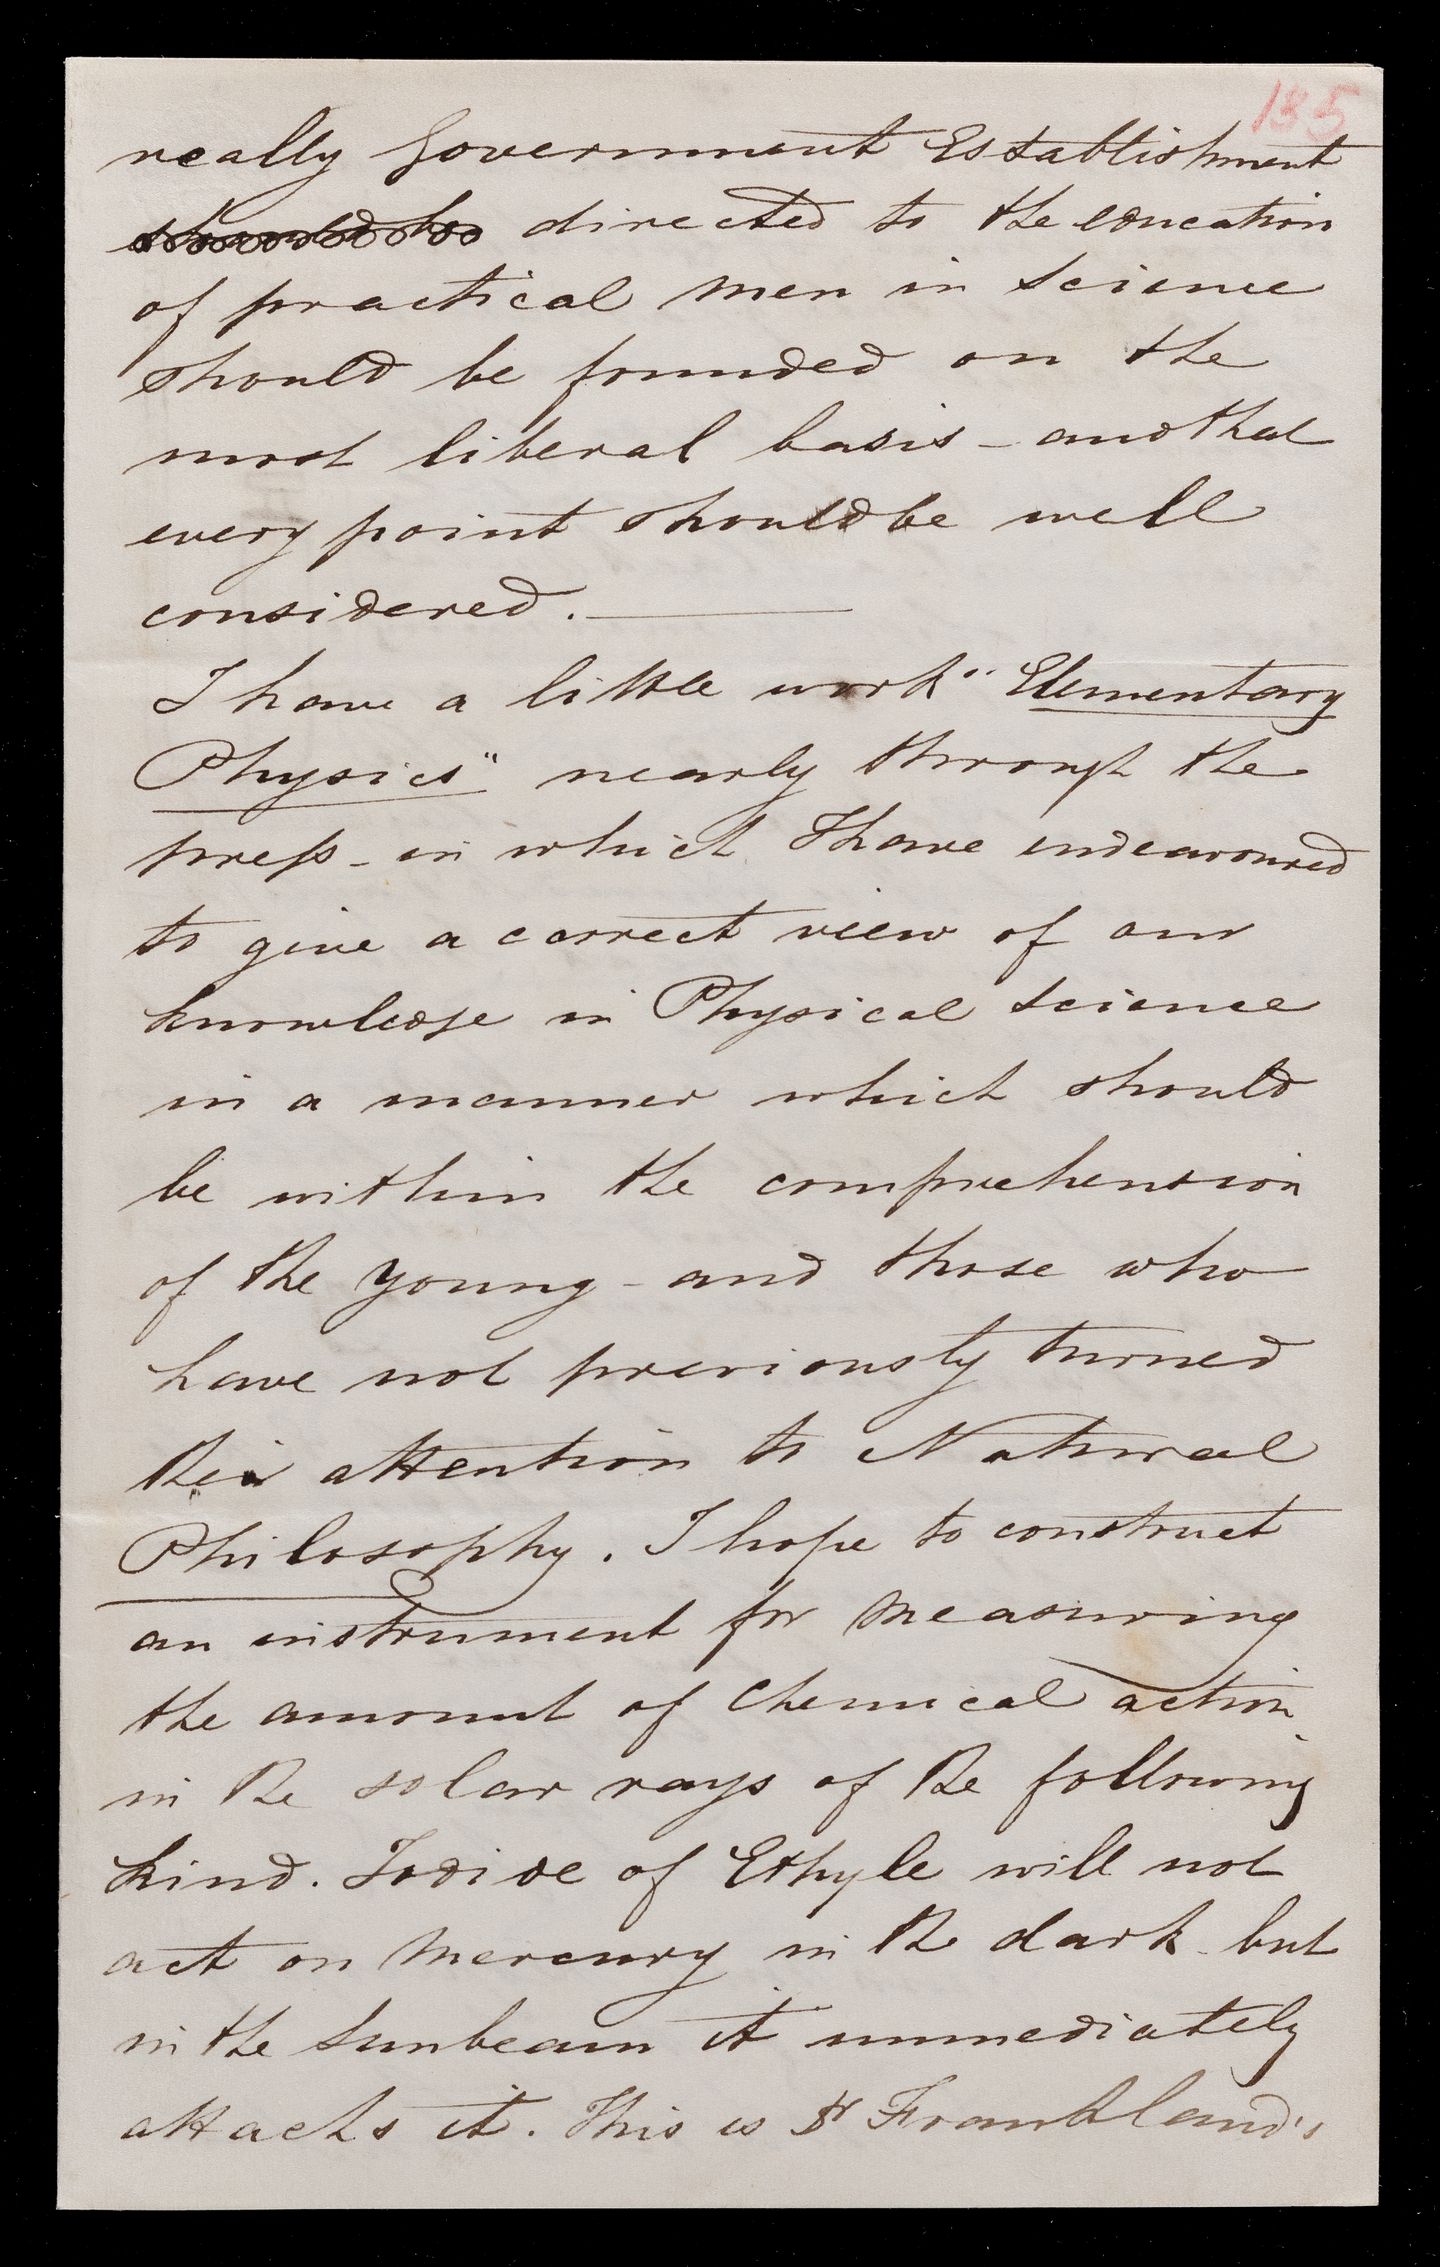 135
really Government Establishment
should be directed to the education
of practical men in science
should be founded on the
most liberal basis - and that
every point should be well
considered. —
I have a little work "Elementary
Physics" nearly through the
press - in which I have endeavoured
to give a correct view of our
knowledge in Physical science
in a manner which should
be within the comprehension
of the young - and those who
have not previously turned
their attention to Natural
Philosophy. I hope to construct
an instrument for measuring
the amount of Chemical action
in the solar rays of the following
kind. Iodide of Ethyle will not
act on Mercury in the dark - but
in the sunbeam it immediately
attacks it. This is Dr Frankland's